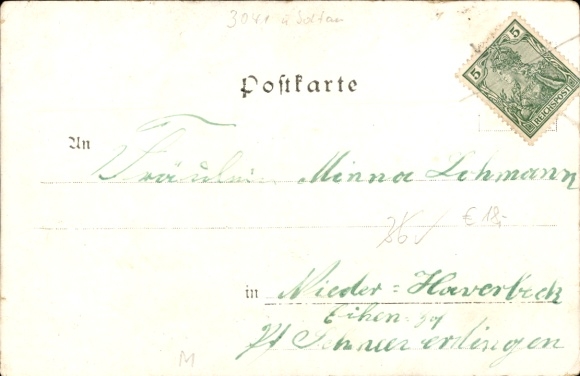 3041 a Soltau
Postkarte
5
5
REICHSPOST
An
Fräulein Minna Lohmann
26 ✓ € 18,-
in Nieder=Haverbeck
Eihen=hof
Pf Schneverdingen
M